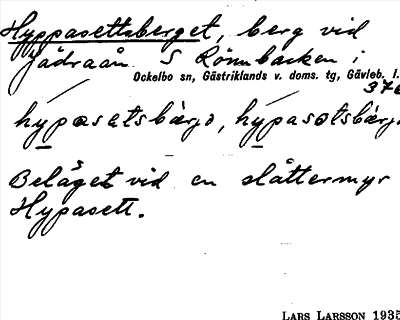 Hyppasettsberget, berg vid
Jädraån S Rönnbacken i
Ockelbo sn, Gästriklands v. doms. tg, Gävleb. l.
376
hýpasatsbärjə, hýpasətsbärjə
Beläget vid en slåttermyr
Hypasett.
LARS LARSSON 1935